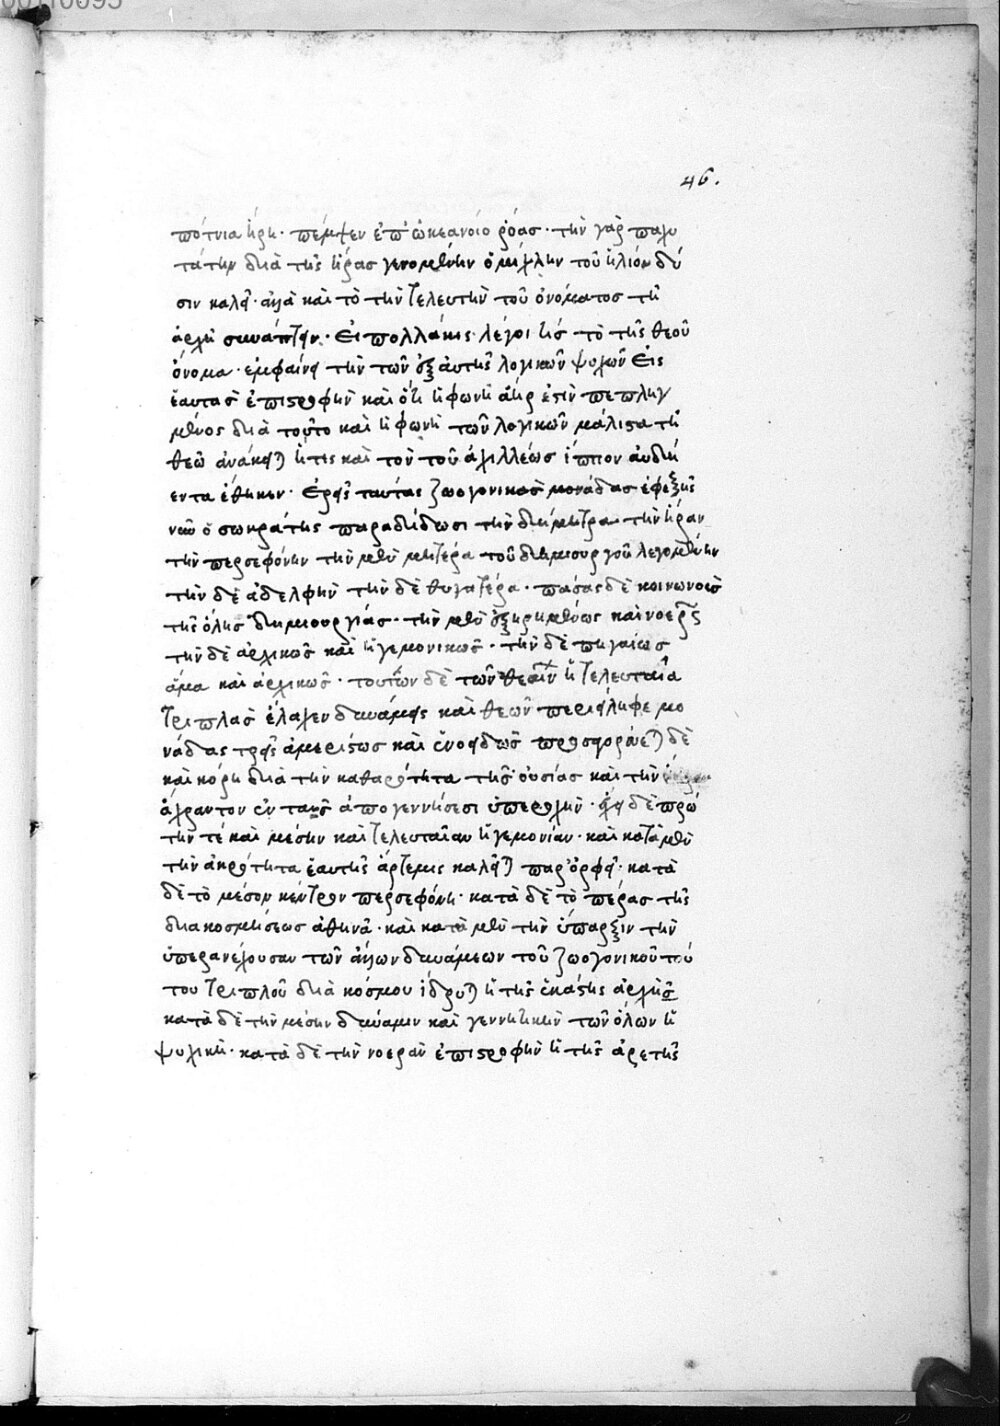 00110095
46.
πότνια ἥρη· πέμψεν ἐπ' ὠκεανοίο ῥόας· τὴν γὰρ παχυ
τάτην διὰ τῆς ἥρας γενομένην ὀμίχλην τοῦ ἡλίου δύ
σιν καλεῖ· ἀλλὰ καὶ τὸ τὴν τελευτὴν τοῦ ὀνόματος τῆ
ἀρχῆ συνάπτειν. Εἰ πολλάκις λέγοι τίς τὸ τῆς θεοῦ
ὄνομα· ἐμφαίνει τὴν τῶν ἐξ αὐτῆς λογικῶν ψυχῶν Εἰς
ἑαυτὰς ἐπιστροφὴν καὶ ὅτι ἡ φωνὴ ἀὴρ ἐστὶν πεπληγ
μένος διὰ τοῦτο καὶ ἡ φωνὴ τῶν λογικῶν μάλιστα τῆ
θεῶ ἀνάκειται ἥτις καὶ τὸν τοῦ ἀχιλλέως ἵππον αὐδή
εντα ἔθηκεν· Τρεῖς ταύτας ζωογονικὰς μονάδας ἐφεξῆς
νῦν ὁ σωκράτης παραδίδωσι τὴν δήμητρα τὴν ἥραν
τὴν περσεφόνην τὴν μὲν μητέρα τοῦ δημιουργοῦ λεγομένην
τὴν δὲ ἀδελφὴν τὴν δὲ θυγατέρα· πάσας δὲ κοινωνοὶς
τῆς ὅλης δημιουργίας· τὴν μὲν ἐξηρημένως καὶ νοερῶς
τὴν δὲ ἀρχικῶς καὶ ἡγεμονικῶς· τὴν δὲ πηγαίως
ἅμα καὶ ἀρχικῶς· τουτῶν δὲ τῶν θεαῖν ἡ τελευταία
τριπλὰς ἔλαχεν δυνάμεις καὶ θεῶν περιείληφε μο
νάδας τρεῖς ἀμερίστως καὶ ἑνοειδῶς προσφοράεται δὲ
καὶ κόρη διὰ τὴν καθαρότητα τῆς οὐσίας καὶ τὴν
ἄχραντον ἐν ταῖς ἀπογεννήσεσι ὑπεροχὴν· ἔχει δὲ πρώ
την τέ καὶ μέσην καὶ τελευταῖαν ἡγεμονίαν· καὶ κατὰ μὲν
τὴν ἀκρότητα ἑαυτῆς ἄρτεμις καλεῖται παρ' ὀρφεῖ· κατὰ
δὲ τὸ μέσον κέντρον περσεφόνη· κατὰ δὲ τὸ πέρας τῆς
διακοσμήσεως ἀθηνᾶ· καὶ κατὰ μὲν τὴν ὕπαρξιν τὴν
ὑπερανέχουσαν τῶν ἄλλων δυνάμεων τοῦ ζωογονικοῦ τού
του τριπλοῦ διὰ κόσμου ἵδρυται ἡ τῆς ἑκάτης ἀρχῆς
κατὰ δὲ τὴν μέσην δύναμιν καὶ γεννητικὴν τῶν ὅλων ἡ
ψυχικὴ· κατὰ δὲ τὴν νοερὰν ἐπιστροφὴν ἡ τῆς ἀρετῆς